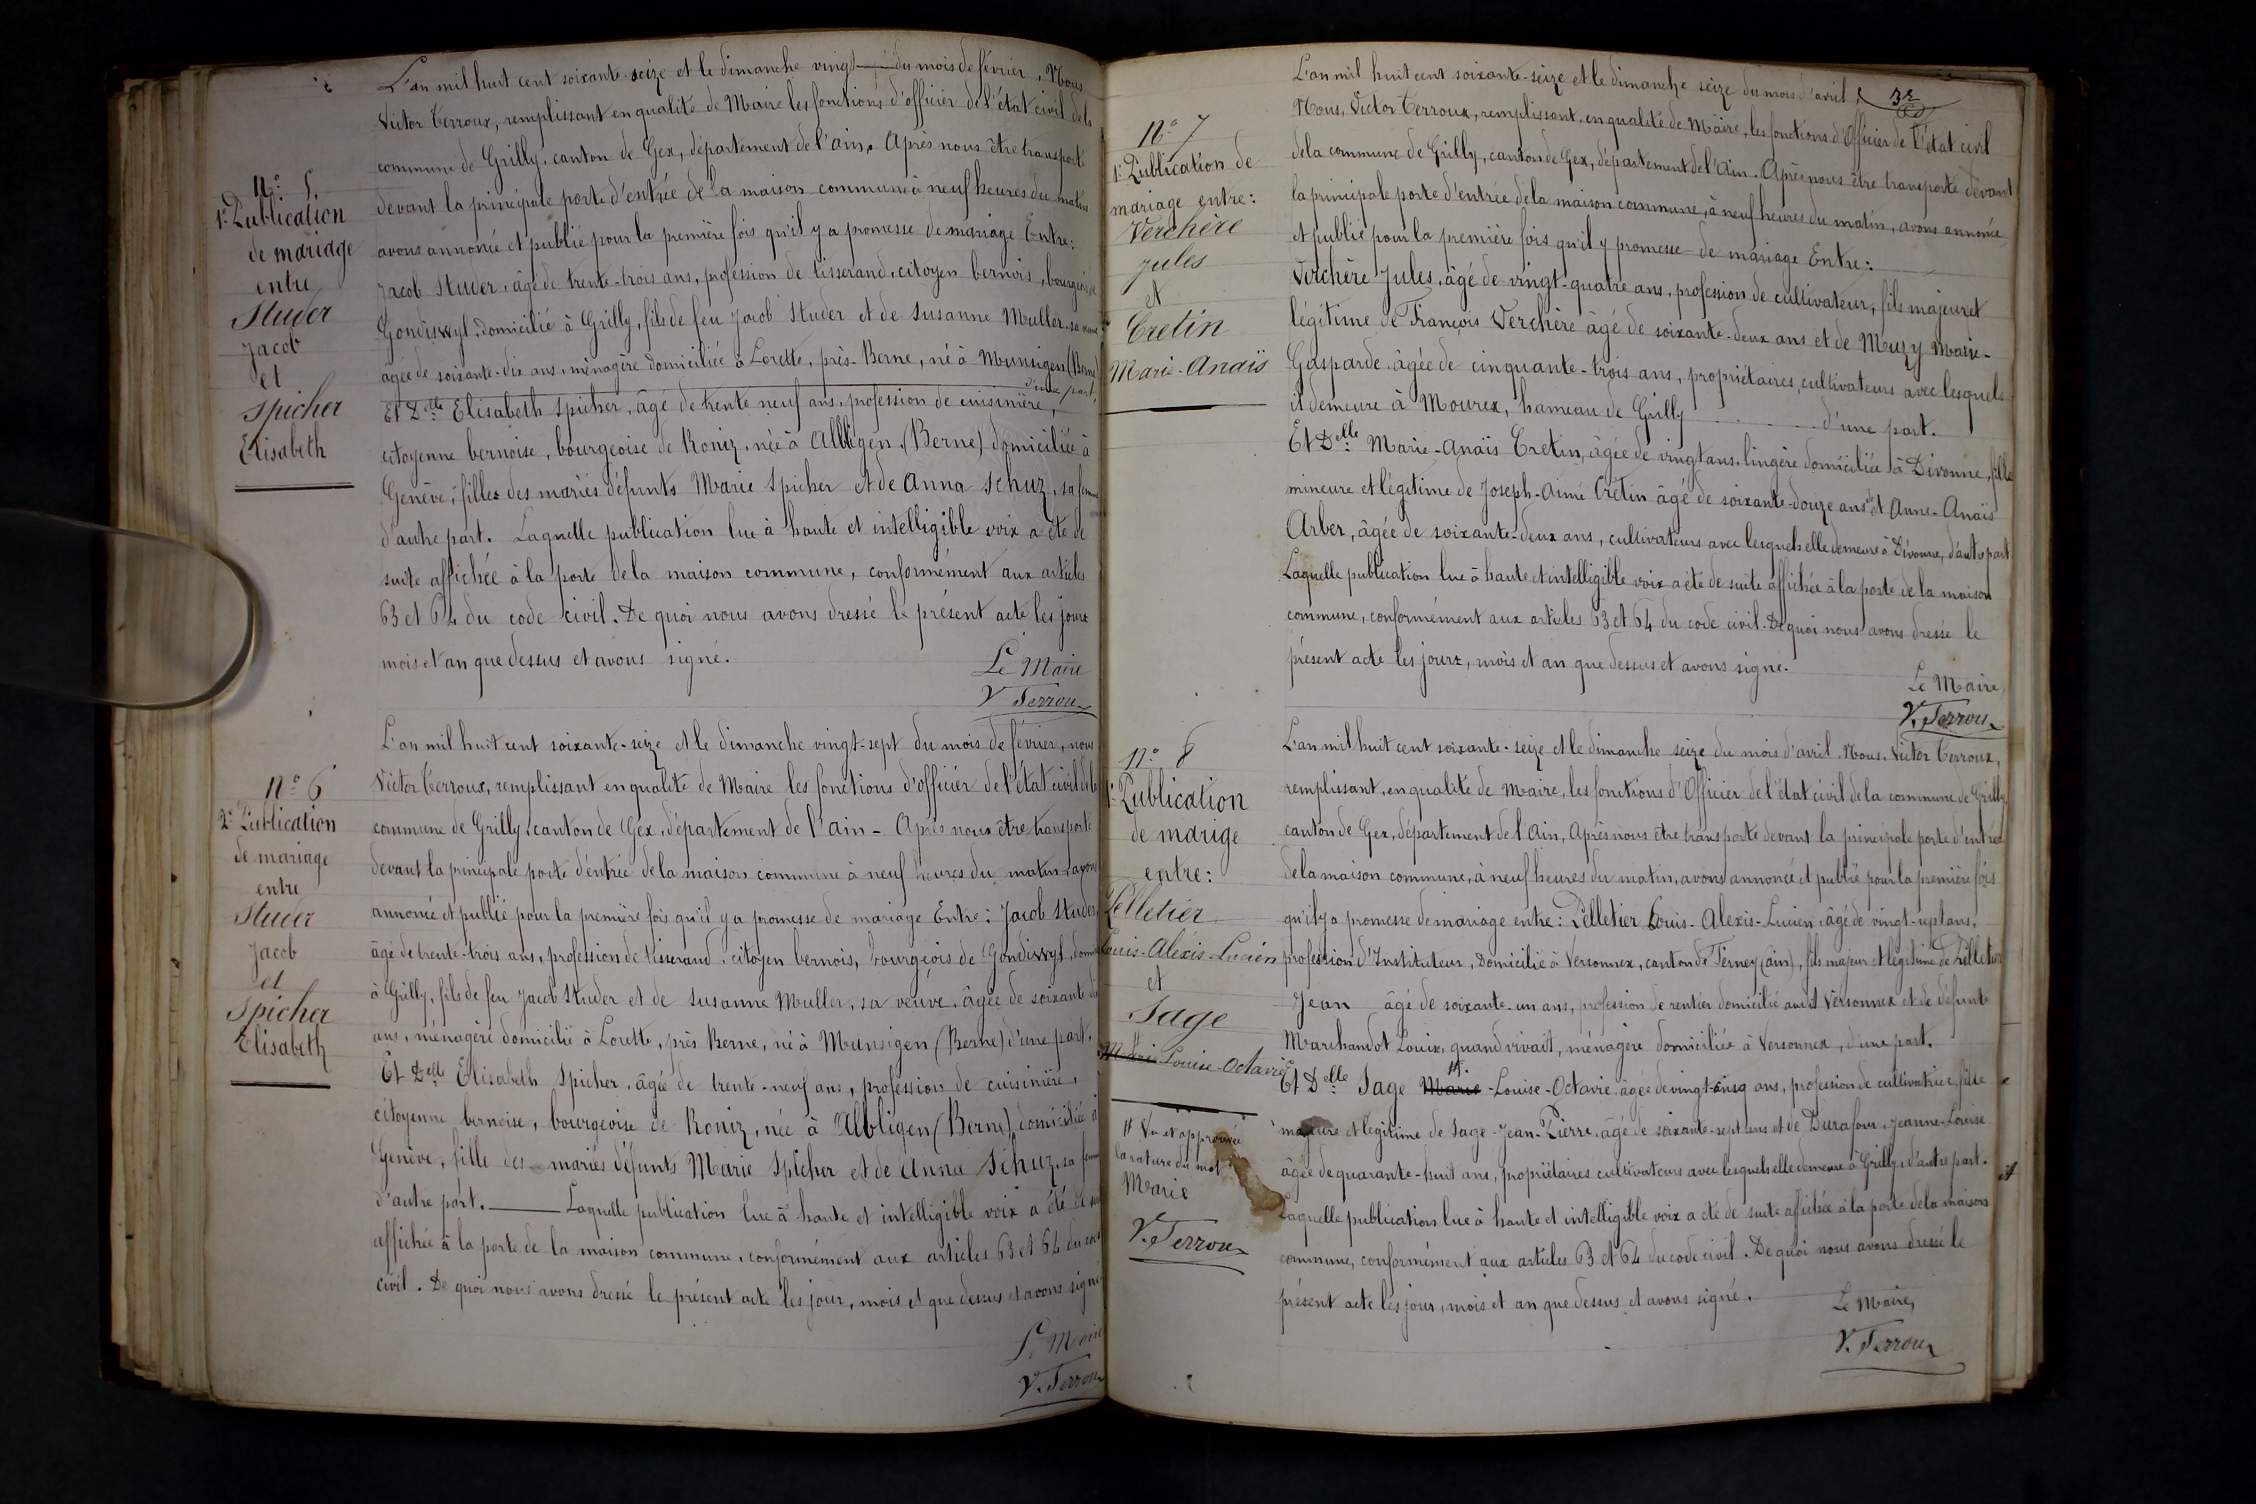 N.º 5.
1.e Publication
de mariage
entre
Studer
Jacob
et
Spicher
Elisabeth
L'an mil huit cent soixante-seize et le dimanche vingt — du mois de février, Nous
Victor Terroux, remplissant en qualité de Maire les fonctions d'officier de l'état civil de la
commune de Grilly, canton de Gex, département de l'ain. Après nous être transporté
devant la principale porte d'entrée de la maison commune à neuf heures du matin
avons annoncé et publié pour la première fois qu'il y a promesse de mariage Entre:
Jacob Studer, âgé de trente-trois ans, profession de tisserand, citoyen bernois, bourgeois de
Gondiswyl, domicilié à Grilly, fils de feu Jacob Studer et de Susanne Muller, sa veuve
âgée de soixante-dix ans, ménagère domiciliée à Lorette, près-Berne, né à Munsigen (Berne)
d'une part,
Et Delle Elisabeth Spicher, âgé de trente neuf ans, profession de cuisinière,
citoyenne bernoise, bourgeoise de Koniz, née à Albligen (Berne) domiciliée à
Genève, filles des mariés défunts Marie Spicher et de Anna Schuz, sa femme
d'autre part. Laquelle publication lue à haute et intelligible voix a été de
suite affichée à la porte de la maison commune, conformément aux articles
63 et 64 du code civil. De quoi nous avons dressé le présent acte les jour
mois et an que dessus et avons signé.
Le Maire
V. Terroux
N.º 6
2.e Publication
de mariage
entre
Studer
Jacob
et
Spicher
Elisabeth
L'an mil huit cent soixante-seize et le dimanche vingt-sept du mois de février, nous
Victor Terroux, remplissant en qualité de Maire les fonctions d'officier de l'état civil de la
commune de Grilly, canton de Gex, département de l'ain - Après nous être transporté
devant la principale porte d'entrée de la maison commune à neuf heures du matin, avons
annoncé et publié pour la première fois qu'il y a promesse de mariage Entre: Jacob Studer
âgé de trente-trois ans, profession de tisserand, citoyen bernois, bourgeois de Gondiswyl, domicilié
à Grilly, fils de feu Jacob Studer et de Susanne Muller, sa veuve, âgée de soixante-dix
ans, ménagère domicilié à Lorette, près Berne, né à Munsigen (Berne) d'une part.
Et Delle Elisabeth Spicher, âgée de trente-neuf ans, profession de cuisinière,
citoyenne bernoise, bourgeoise de Koniz, née à Albligen (Berne) domiciliée à
Genève, fille des mariés défunts Marie Spicher et de Anna Schuz, sa femme
d'autre part. — Laquelle publication lue à haute et intelligible voix a été de suite
affichée à la porte de la maison commune, conformément aux articles 63 et 64 du code
civil. De quoi nous avons dressé le présent acte les jour, mois et que dessus et avons signé
Le Maire
V. Terroux
32
N.º 7
1.e Publication de
mariage entre:
Verchère
Jules
et
Cretin
Marie-Anaïs
L'an mil huit cent soixante-seize et le dimanche seize du mois d'avril,
Nous, Victor Terroux, remplissant, en qualité de Maire, les fonctions d'Officier de l'état civil
de la commune de Grilly, canton de Gex, département de l'Ain. Après nous être transporté devant
la principale porte d'entrée de la maison commune, à neuf heures du matin, avons annoncé
et publié pour la première fois qu'il y promesse de mariage Entre:
Verchère Jules, âgé de vingt-quatre ans, profession de cultivateur, fils majeur et
légitime de François Verchère âgé de soixante-deux ans et de Meuzy Marie-
Gasparde, âgée de cinquante-trois ans, propriétaires, cultivateurs avec lesquels
il demeure à Mourex, hameau de Grilly . . . . d'une part.
Et Delle Marie-Anaïs Cretin, âgée de vingt ans, lingère domiciliée à Divonne, fille
mineure et légitime de Joseph-Aimé Cretin âgé de soixante-douze ans et Anne-Anaïs
Arber, âgée de soixante-deux ans, cultivateurs avec lesquels elle demeure à Divonne, d'autre part.
Laquelle publication lue à haute et intelligible voix a été de suite affichée à la porte de la maison
commune, conformément aux articles 63 et 64 du code civil. De quoi nous avons dressé le
présent acte les jours, mois et an que dessus et avons signé.
Le Maire,
V. Terroux
N.º 8
1.e Publication
de marige
entre:
Pelletier
Louis-Alexis-Lucien
et
Sage
Marie-Louise-Octavie
# Vu et approuvée
la rature du mot
Marie
V. Terroux
L'an mil huit cent soixante-seize et le dimanche seize du mois d'avril. Nous, Victor Terroux,
remplissant, en qualité de Maire, les fonctions d'Officier de l'état civil de la commune de Grilly,
canton de Gex, département de l'Ain, Après nous être transporté devant la principale porte d'entrée
de la maison commune, à neuf heures du matin, avons annoncé et publié pour la première fois
qu'il y a promesse de mariage entre: Pelletier Louis-Alexis-Lucien, âgé de vingt-sept ans,
profession d'Instituteur, domicilié à Versonnex, canton de Ferney (ain), fils majeur et légitime de Pelletier
Jean âgé de soixante-un ans, profession de rentier domicilié audit Versonnex et de défunte
Marchandot Louise, quand vivait, ménagère domiciliée à Versonnex, d'une part.
Et Delle Sage Marie # -Louise-Octavie, âgée de vingt-cinq ans, profession de cultivatrice, fille
majeure et légitime de Sage-Jean-Pierre, âgé de soixante-sept ans et de Durafour, Jeanne-Louise
âgée de quarante-huit ans, propriétaires cultivateurs avec lesquels elle demeure à Grilly, d'autre part.
Laquelle publication lue à haute et intelligible voix a été de suite affichée à la porte de la maison
commune, conformément aux articles 63 et 64 du code civil. De quoi nous avons dressé le
présent acte les jour, mois et an que dessus et avons signé.
Le Maire,
V. Terroux